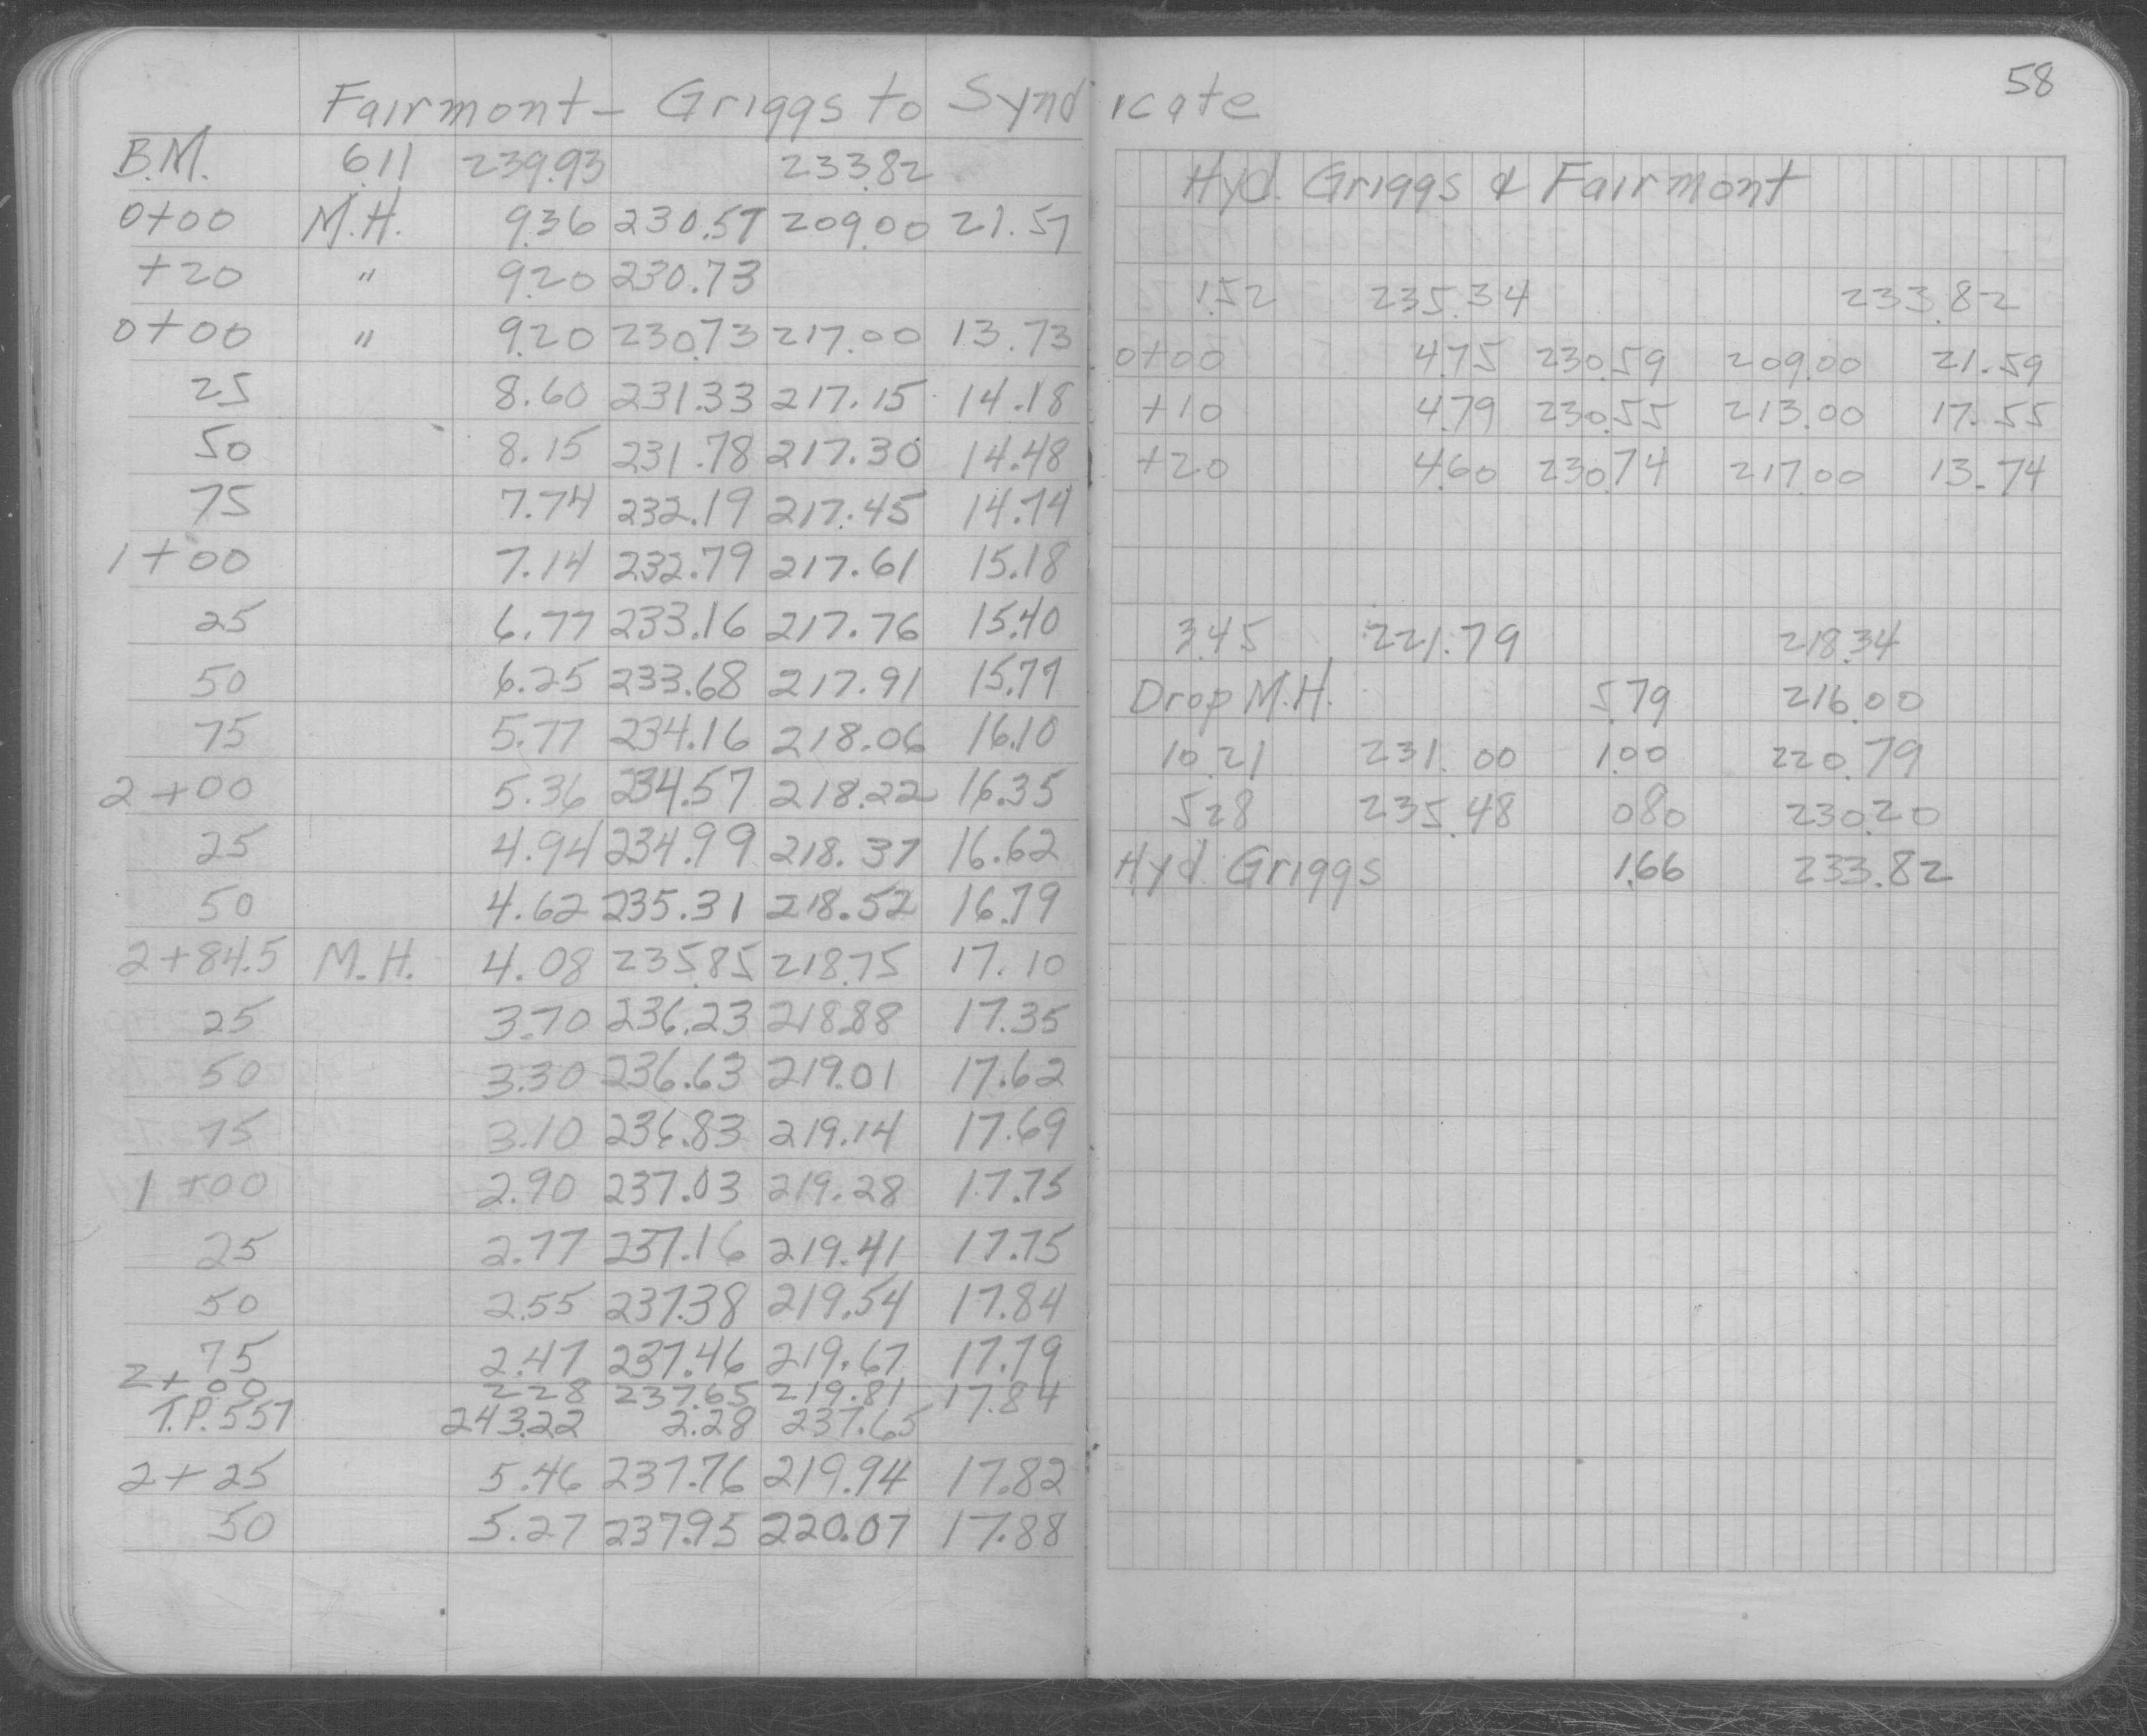 58
Fairmont - Griggs to Syndicate
B.M. 6.11 239.93 233.82
0+00 M.H. 9.36 230.57 209.00 21.57
+20 " 9.20 230.73
0+00 " 9.20 230.73 217.00 13.73
25 8.60 231.33 217.15 14.18
50 8.15 231.78 217.30 14.48
75 7.74 232.19 217.45 14.74
1+00 7.14 232.79 217.61 15.18
25 6.77 233.16 217.76 15.40
50 6.25 233.68 217.91 15.77
75 5.77 234.16 218.06 16.10
2+00 5.36 234.57 218.22 16.35
25 4.94 234.99 218.37 16.62
50 4.62 235.31 218.52 16.79
2+84.5 M.H. 4.08 235.85 218.75 17.10
25 3.70 236.23 218.88 17.35
50 3.30 236.63 219.01 17.62
75 3.10 236.83 219.14 17.69
1+00 2.90 237.03 219.28 17.75
25 2.77 237.16 219.41 17.75
50 2.55 237.38 219.54 17.84
75 2.47 237.46 219.67 17.79
2+00 2.28 237.65 219.81 17.84
T.P. 5.57 243.22 2.28 237.65
2+25 5.46 237.76 219.94 17.82
50 5.27 237.95 220.07 17.88
Hyd. Griggs & Fairmont
1.52 235.34 233.82
0+00 4.75 230.59 209.00 21.59
+10 4.79 230.55 213.00 17.55
+20 4.60 230.74 217.00 13.74
3.45 221.79 218.34
Drop M.H. 5.79 216.00
10.21 231.00 1.00 220.79
5.28 235.48 0.80 230.20
Hyd. Griggs 1.66 233.82